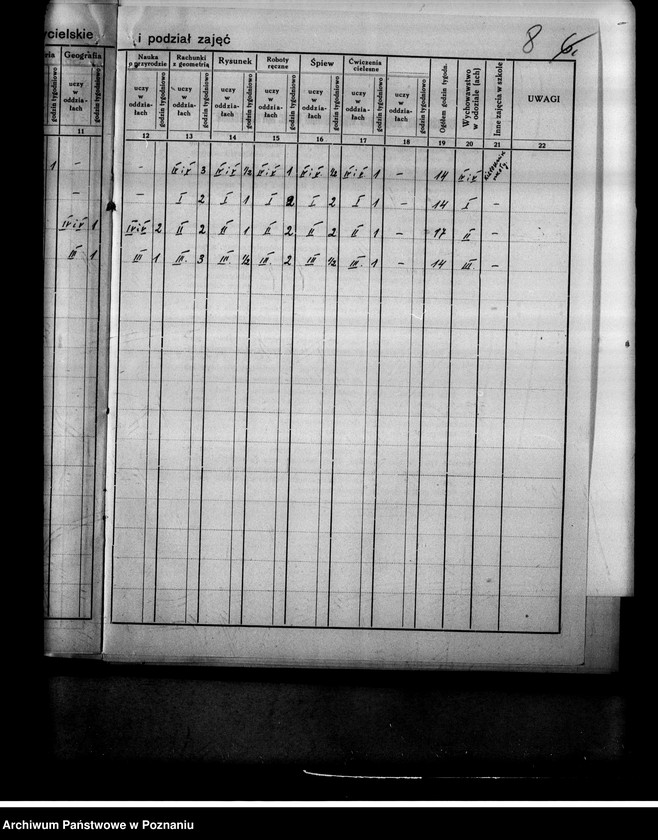 cielskie i podział zajęć 8 6.
ria Geografia Nauka o przyrodzie Rachunki z geometrją Rysunek Roboty ręczne Śpiew Ćwiczenia cielesne Ogółem godzin tygodn. Wychowawstwo w odziale (ach) Inne zajęcia w szkole UWAGI
godzin tygodniowo uczy w oddzia-łach godzin tygodniowo uczy w oddzia-łach godzin tygodniowo uczy w oddzia-łach godzin tygodniowo uczy w oddzia-łach godzin tygodniowo uczy w oddzia-łach godzin tygodniowo uczy w oddzia-łach godzin tygodniowo uczy w oddzia-łach godzin tygodniowo uczy w oddzia-łach godzin tygodniowo
11 12 13 14 15 16 17 18 19 20 21 22
1 – – IV i V 3 IV i V 1/2 IV i V 1 IV i V 1/2 IV i V 1 – 14 IV i V
– – I 2 I 1 I 2 I 2 I 1 – 14 I –
IV i V 1 IV i V 2 II 2 II 1 II 2 II 2 II 1 – 17 II –
III 1 III 1 III. 3 III. 1/2 III. 2 III 1/2 III. 1 – 14 III –
Archiwum Państwowe w Poznaniu